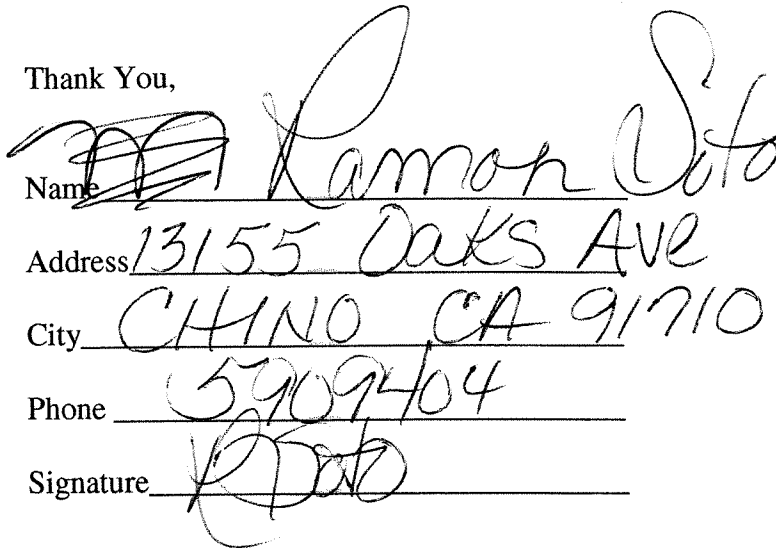 Thank You,
Name Ramon Soto
Address 13155 Oaks Ave
City CHINO CA 91710
Phone 5909404
Signature R Soto